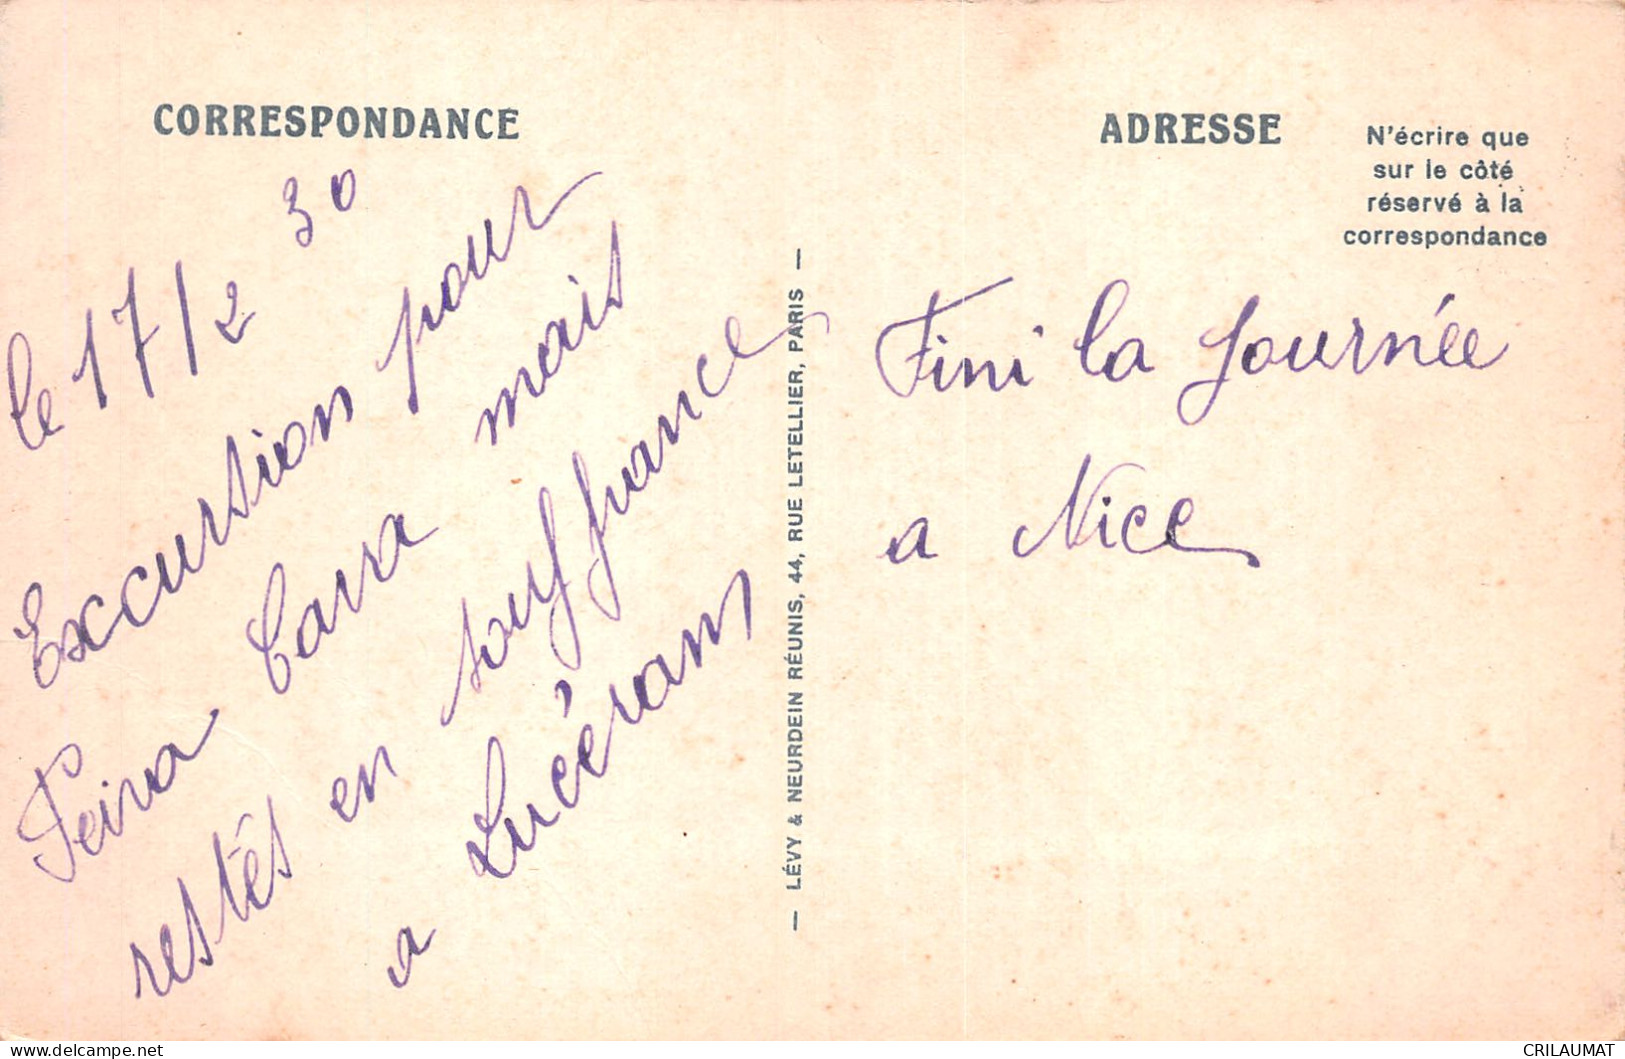 CORRESPONDANCE
le 17/2 30
Excurstion pour
Peira Cava mais
restés en souffrance
a Lucérans
— LÉVY & NEURDEIN RÉUNIS, 44, RUE LETELLIER, PARIS —
ADRESSE
N'écrire que
sur le côté
réservé à la
correspondance
Fini la Journée
a Nice
CRILAUMAT